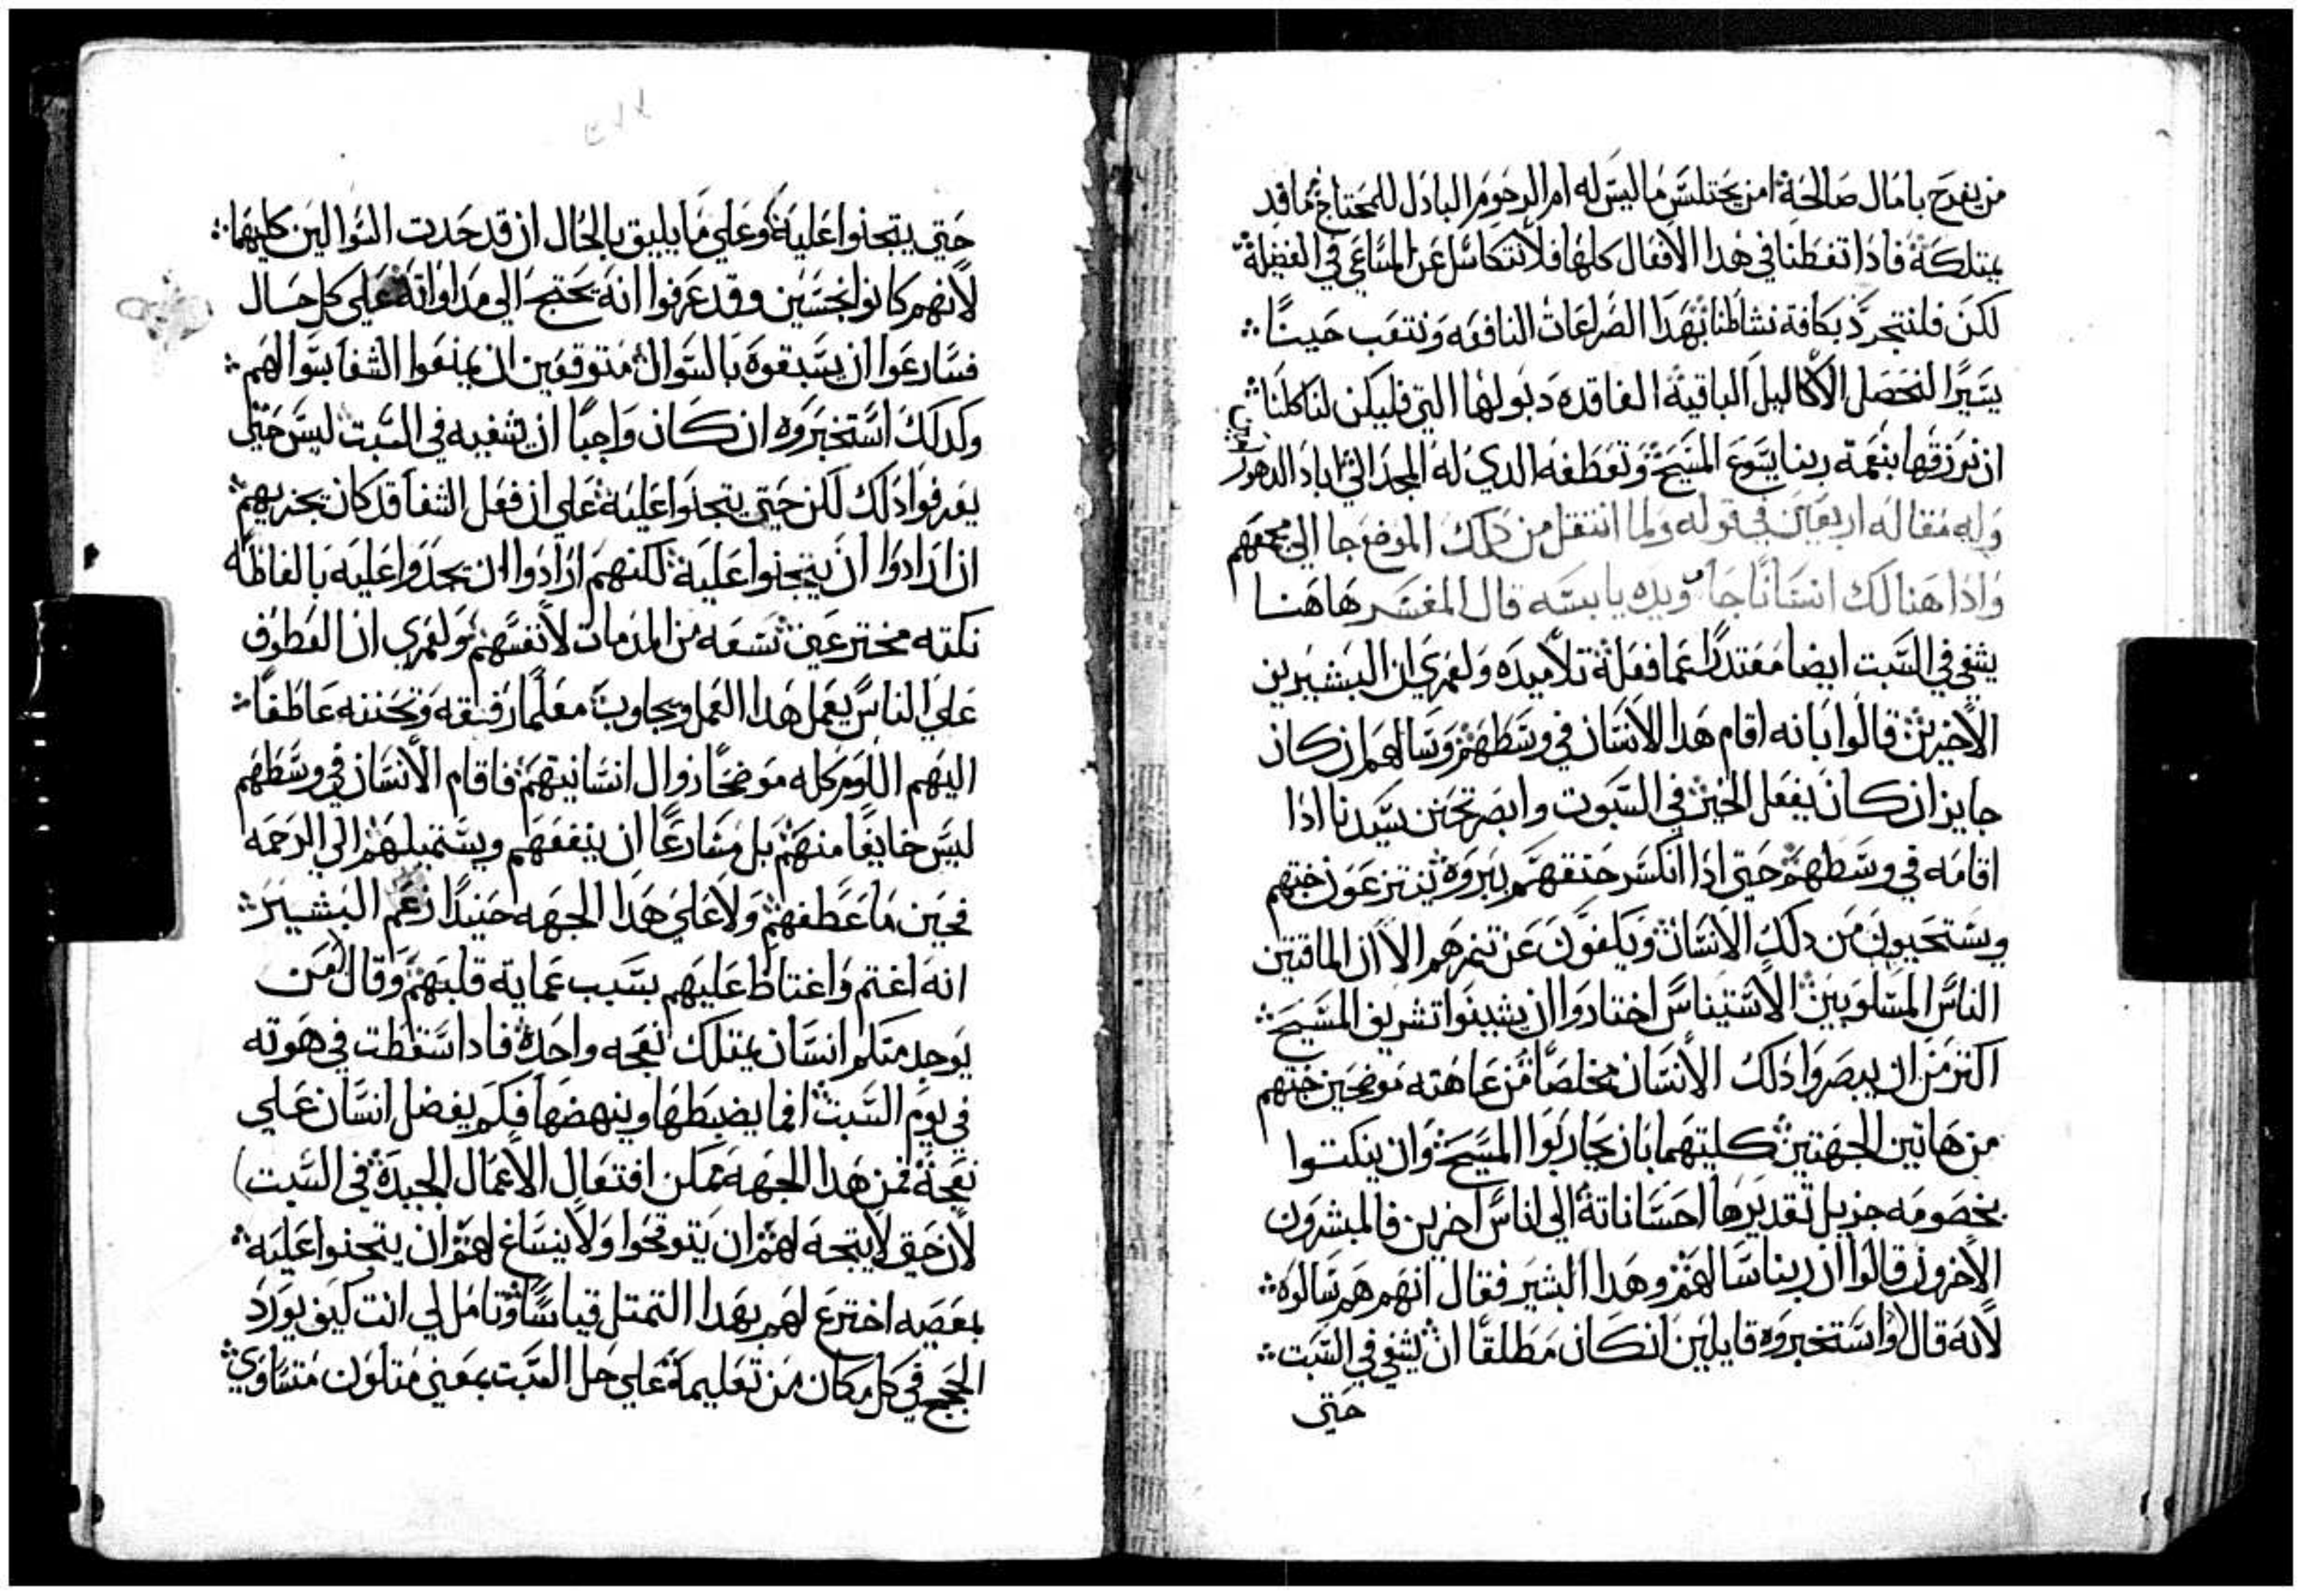 من يفرح بامال صالحة امن يختلس ما ليس له ام الرحوم الباذل للمحتاج ما قد
يمتلكة فاذا تفطنا في هذا الافعال كلها فلا نتكاسل عن المساعي في الفضيلة
لكن فلنتجرد بكافة نشاطنا بهذا الصراعات النافعه ونتعب حينًا
يسيرًا لنحصل الاكاليل الباقية الفاقده دبولها التي فليكن لنا كلنا
ان نرزقها بنعمة ربنا يسوع المسيح وتعطفه الدي له المجد الي اباد الدهور
وله مقاله اربعين في قوله ولما انتقل من دلك الموضع جا الي مجمعهم
واذا هنالك انسانًا جا ويده يابسه قال المفسر هاهنا
يشفي في السبت ايضا معتدرًا عما فعلة تلاميده ولعمري ان البشيرين
الاخرين قالوا بانه اقام هدا الانسان في وسطهم وسالهم ان كان
جايز ان كان يفعل الخير في السبوت وابصر تحنن سيدنا اذا
اقامه في وسطهم حتى اذا انكسر حنقهم بيروه ينتزعون خبتهم
ويستحيون من دلك الانسان ويكفون عن تنمرهم الا ان الماقتين
الناس المسلوبين الاستيناس اختاروا ان يشينوا تشريف المسيح
اكتر من ان يبصروا ذلك الانسان مخلصًا من عاهته موضحين خبتهم
من هاتين الجهتين كلتيهما بان يحاربوا المسيح وان ينكتوا
بخصومه جزيل تقديرها احساناتة الي اناس اخرين فالمبشرون
الاخرون قالوا ان ربنا سالهم وهدا البشير فقال انهم هم سالوه
لانه قال واستخبروه قايلين ان كان مطلقًا ان يشفي في السبت
حتى
حتى يتجنوا علية وعلي ما يليق بالحال ان قد حدت السوالين كليهما
لانهم كانوا نجسين وقد عرفوا انه يحتج الي مداواته على كل حال
فسارعوا ان يسبقوه بالسوال متوقعين ان يمنعوا الشفا بسوالهم
ولدلك استخبروه ان كان واجبًا ان يشفيه في السبت ليس حتى
يعرفوا ذلك لكن حتى يتجنوا علية على ان فعل الشفا قد كان يجزيهم
ان ارادوا ان يتجنوا علية لكنهم ارادوا ان يجدوا عليه بالفاظه
نكته مخترعين تسعه من المدمات لانفسهم ولعمري ان العطوف
على الناس يعمل هدا العمل ويجاوب معلمًا رفقه وتحننه عاطفًا
اليهم اللوم كله موضحًا زوال انسانيتهم فاقام الانسان في وسطهم
ليس خايفًا منهم بل مسارعًا ان ينفعهم ويستميلهم الي الرحمه
فحين ما عطفهم ولا على هذا الجهه حنيدًا زعم البشير
انه اغتم واغتاظ عليهم بسبب عماية قلبهم وقال من
يوجد منكم انسان يمتلك نعجه واحدة فادا سقطت في هوته
في يوم السبت افما يضبطها وينهضها فكم يفضل انسان علي
نعجة فمن هدا الجهه يمكن افتعال الاعمال الجيدة في السبت
لان حتى لا يتجه لهم ان يتوقحوا ولا ينساغ لهم ان يتجنوا عليه
بمعصيه اخترع لهم بهدا التمتل قياسًا وتامل لي انت كيف يورد
الحجج في كل مكان من تعليمة على حل السبت بمعنى متلون متساوي